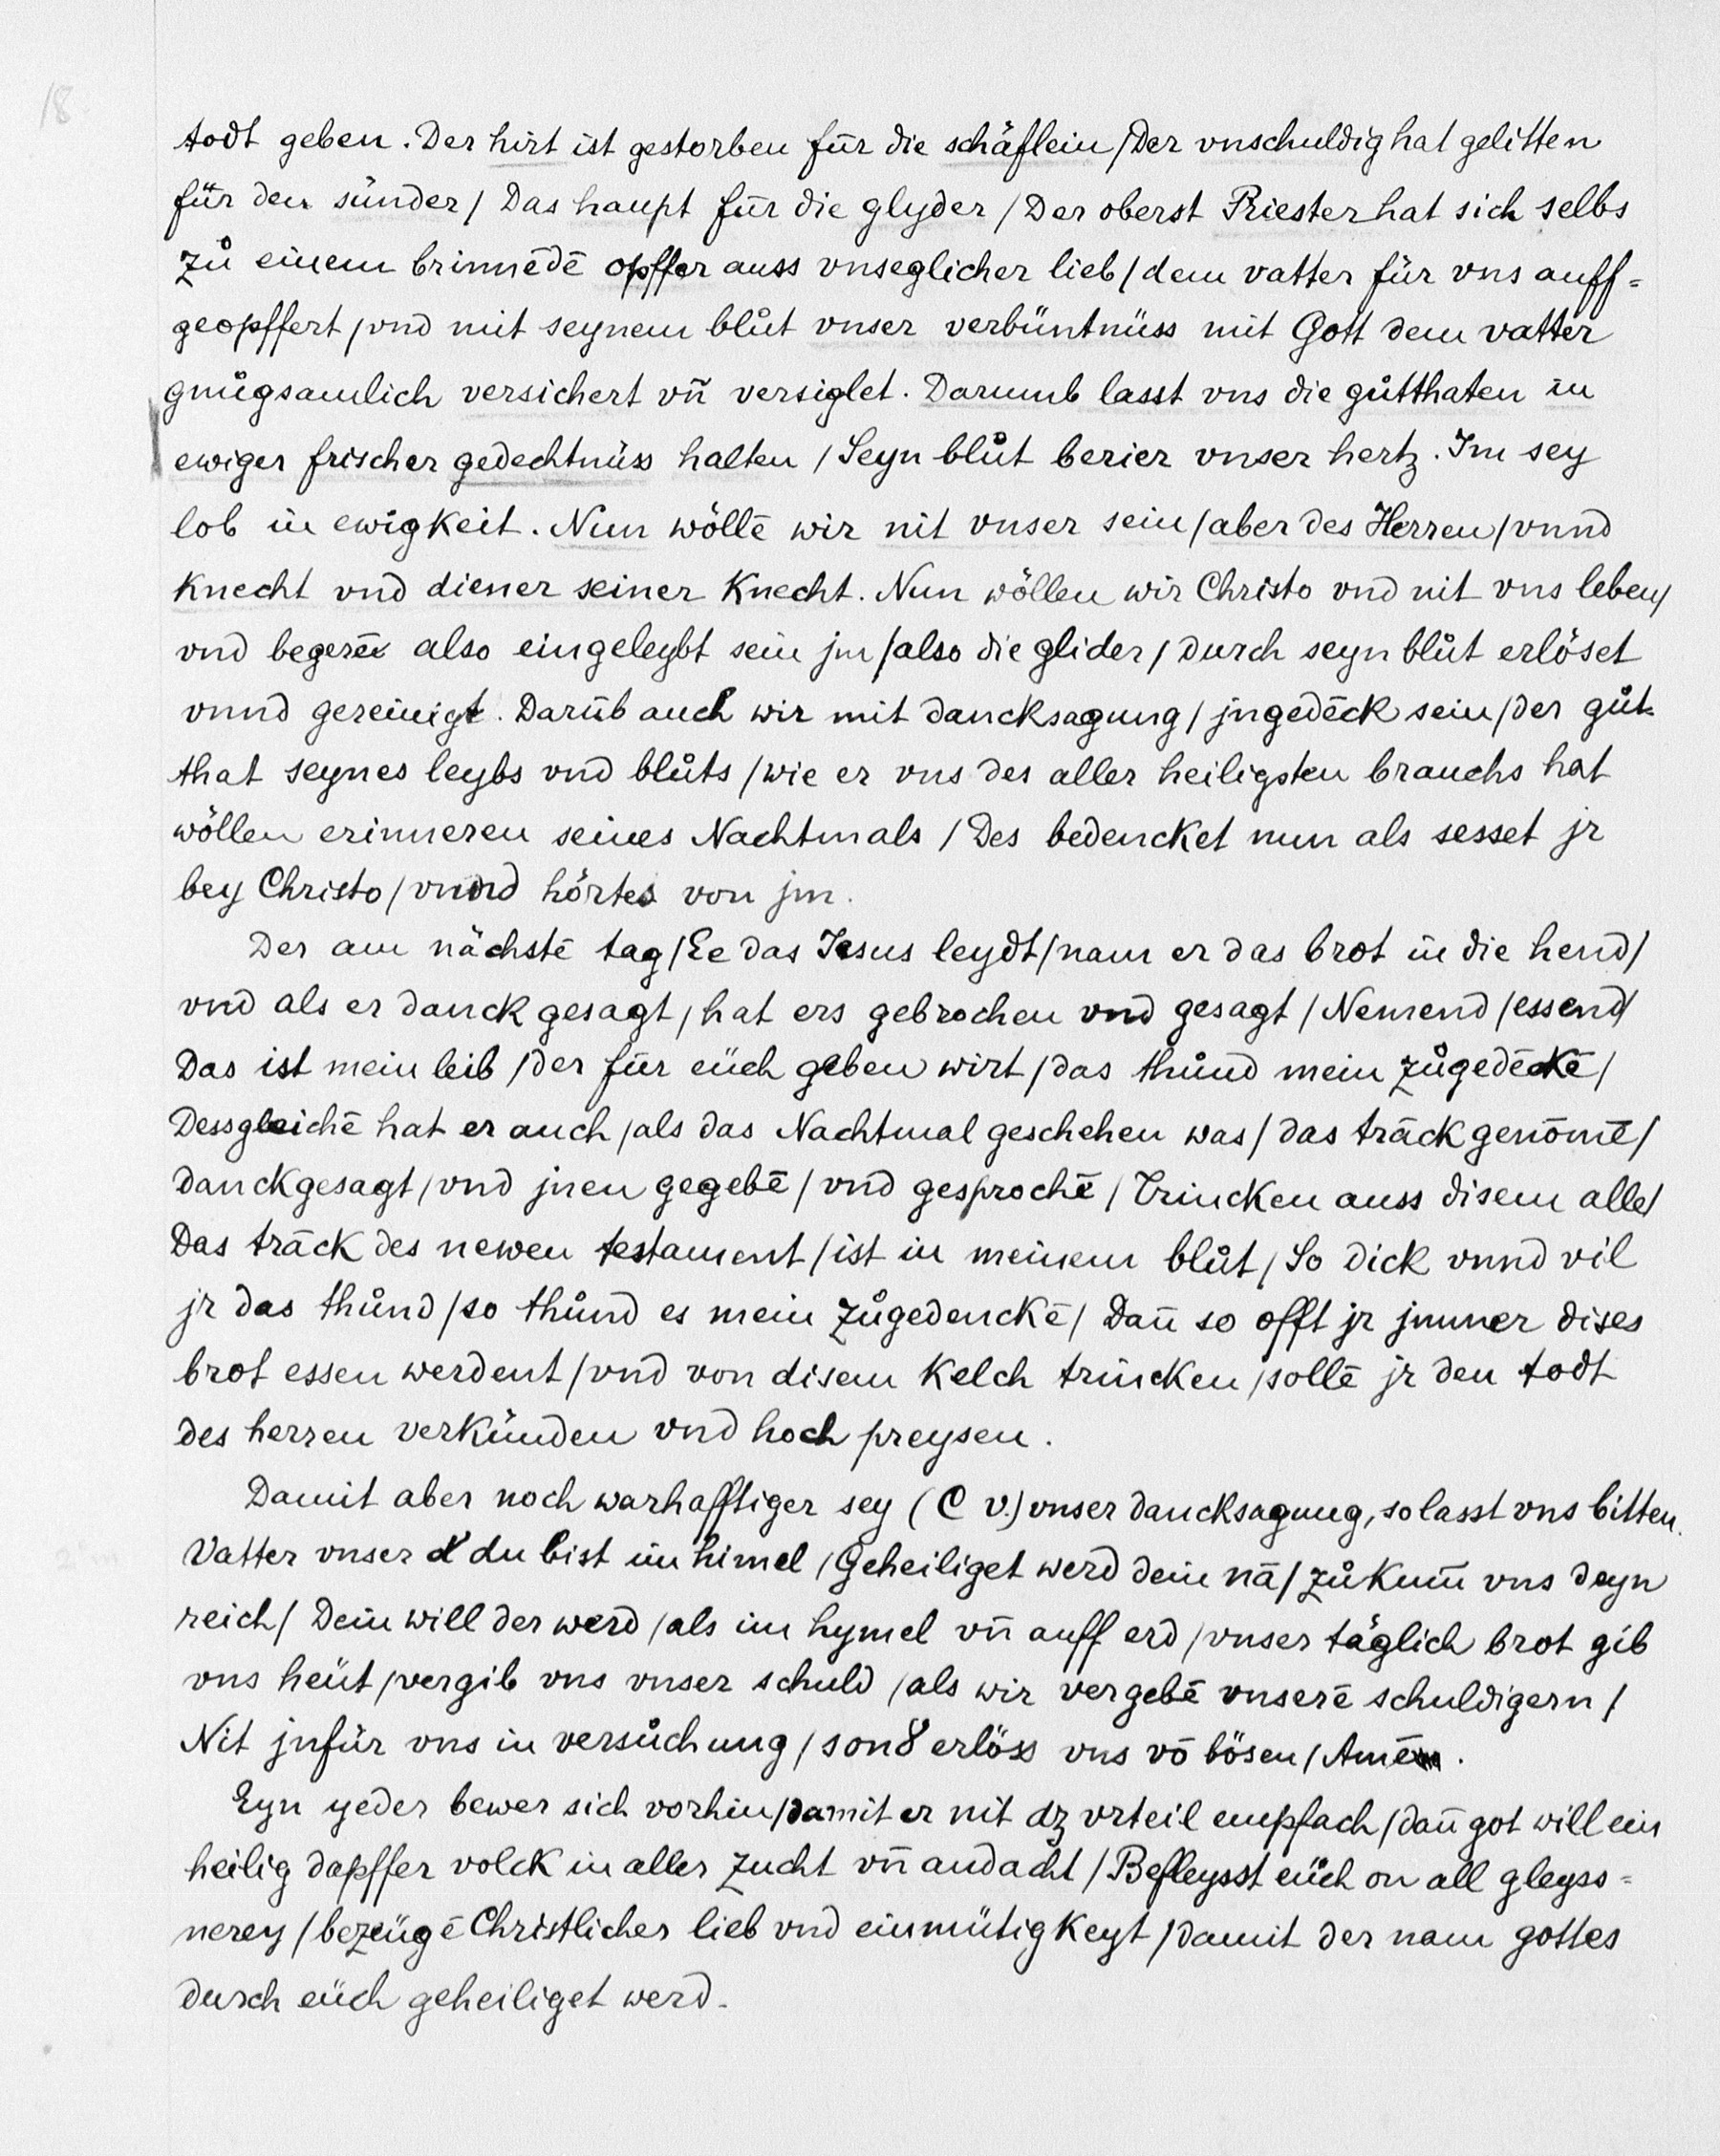 18
todt geben. Der hirt ist gestorben für die schäflein / Der vnschuldig hat gelitten
für den sünder / Das haupt für die glyder / Der oberst Priester hat sich selbs
zů einem brinnēdē opffer auss vnseglicher lieb / dem vatter für vns auff=
geopffert / vnd mit seynem blůt vnser verbüntnüss mit Gott dem vatter
gnůgsamlich versichert vn̄ versiglet. Darumb lasst vns die gůtthaten in
ewiger frischer gedechtnüss halten / Seyn blůt berier vnser hertz. Im sey
lob in ewigkeit. Nun wöllē wir nit vnser sein / aber des Herren / vnnd
Knecht vnd diener seiner Knecht. Nun wöllen wir Christo vnd nit vns leben /
vnd begerē also eingeleybt sein jm / also die glider / durch seyn blůt erlöset
vnnd gereinigt. Darūb auch wir mit dancksagung / jngedēck sein / der gůt-
that seynes leybs vnd blůts / wie er vns des aller heiligsten brauchs hat
wöllen erinneren seines Nachtmals / Des bedencket nun als sesset jr
bey Christo / vnnd hörtes von jm.
Der am nächstē tag / Ee das Jesus leydt / nam er das brot in die hend /
vnd als er danck gesagt / hat ers gebrochen vnd gesagt / Nemend / essend /
Das ist mein leib / der für eüch geben wirt / das thůnd mein zůgedēckē /
Dessgleichē hat er auch / als das Nachtmal geschehen was / das trāck genōmē /
danckgesagt / vnd jnen gegebē / vnd gesprochē / Trincken auss disem alle /
Das trāck des newen testament / ist in meinem blůt / So dick vnnd vil
jr das thůnd / so thůnd es mein zůgedenckē / Dan̄ so offt jr jmmer dises
brot essen werdent / vnd von disem Kelch trincken / sollē jr den todt
des herren verkünden vnd hoch preysen.
Damit aber noch warhafftiger sey (C v.) vnser dancksagung, so lasst vns bitten.
Vatter vnser d' du bist im himel / Geheiliget werd dein nā / zůkum̄ vns deyn
reich / Dein will der werd / als im hymel vn̄ auff erd / vnser täglich brot gib
vns heüt / vergib vns vnser schuld / als wir vergebē vnserē schuldigern /
Nit jnfür vns in versůchung / sond' erlöss vns vō bösen / Amē.
Eyn yeder bewer sich vorhin / damit er nit dz vrteil empfach / dan̄ got will ein
heilig dapffer volck in aller zucht vn̄ andacht / Befleysst eüch on all gleyss=
nerey / bezeügē Christlicher lieb vnd einmütigkeyt / damit der nam gottes
durch eüch geheiliget werd.